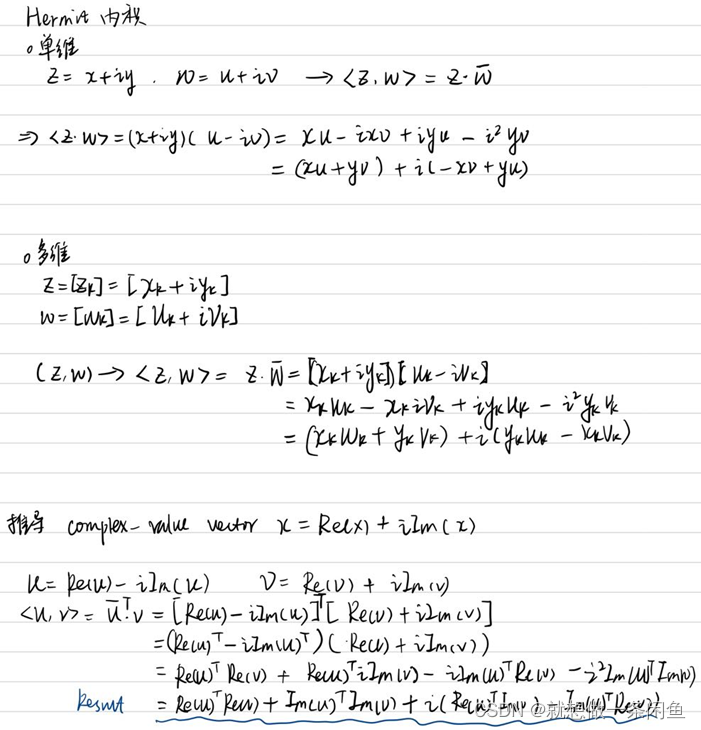 Hermit 内积
。单维
z = x+iy . w = u+iv → <z,w> = z·w̅
⇒ <z·w> = (x+iy)( u-iv) = xu - ixv + iyu - i²yv
= (xu+yv) + i(-xv+yu)
。多维
z=[zₖ] = [xₖ+iyₖ]
w=[wₖ] = [uₖ+ivₖ]
(z,w) → <z,w> = z·w̅ = [xₖ+iyₖ][uₖ-ivₖ]
= xₖuₖ - xₖivₖ + iyₖuₖ - i²yₖvₖ
= (xₖuₖ + yₖvₖ) + i(yₖuₖ - xₖvₖ)
推导 complex-value vector x = Re(x) + iIm(x)
u = Re(u) - iIm(u) v = Re(v) + iIm(v)
<u,v> = u̅ᵀ·v = [Re(u) - iIm(u)]ᵀ[Re(v) + iIm(v)]
= (Re(u)ᵀ - iIm(u)ᵀ)(Re(v) + iIm(v))
= Re(u)ᵀRe(v) + Re(u)ᵀiIm(v) - iIm(u)ᵀRe(v) - i²Im(u)ᵀIm(v)
Result = Re(u)ᵀRe(v) + Im(u)ᵀIm(v) + i(Re(u)ᵀIm(v) - Im(u)ᵀRe(v))
CSDN @就想做一条闲鱼